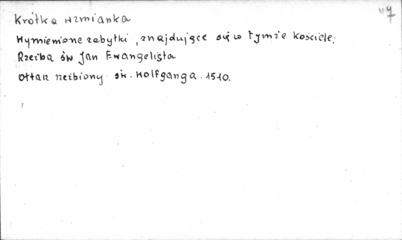 47
Krótka wzmianka
Wymienione zabytki, znajdujące się w tymże kościele;
Rzeźba św Jan Ewangelista
Ołtarz rzeźbiony św. Wolfganga. 1510.